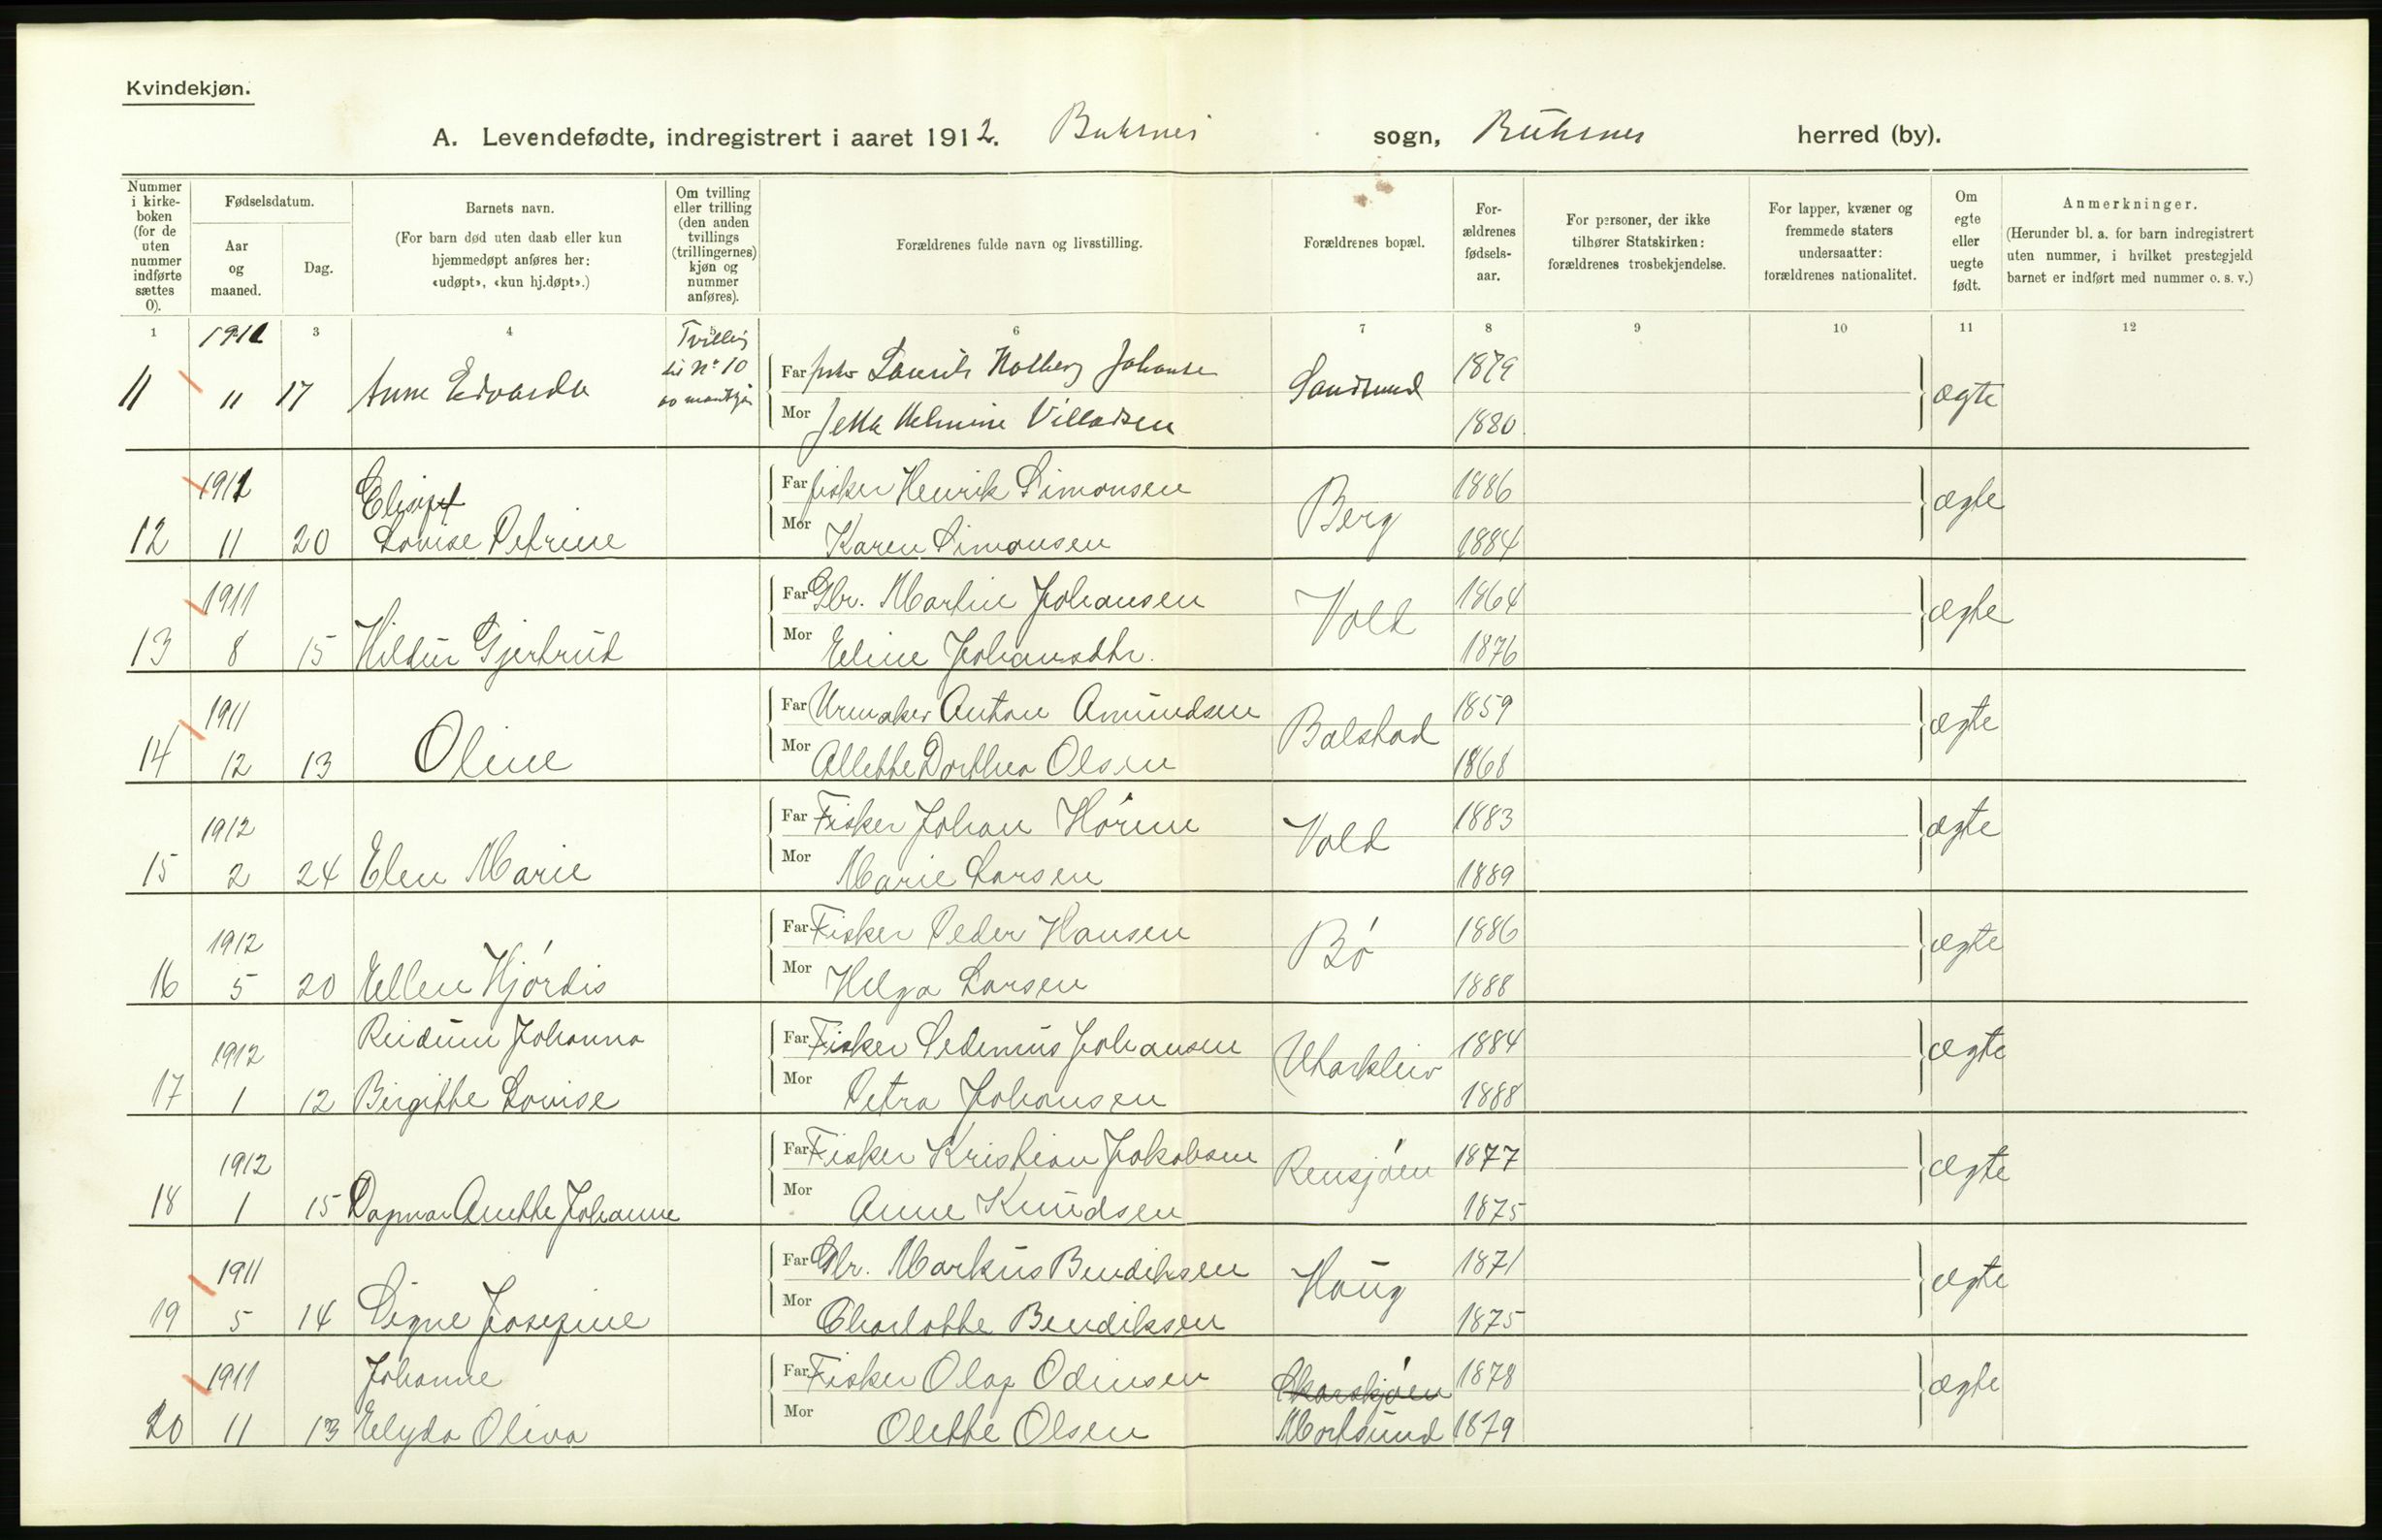 Kvindekjøn.
A. Levendefødte, indregistrert i aaret 1912. Buksnes sogn, Buksnes herred (by).
Nummer i kirkeboken (for de uten nummer indførte sættes 0).
Fødselsdatum.
Aar og maaned.
Dag.
Barnets navn.
(For barn død uten daab eller kun hjemmedøpt anføres her: «udøpt», «kun hj.døpt».)
Om tvilling eller trilling (den anden tvillings (trillingernes) kjøn og nummer anføres).
Forældrenes fulde navn og livsstilling.
Forældrenes bopæl.
Forældrenes fødselsaar.
For personer, der ikke tilhører Statskirken: forældrenes trosbekjendelse.
For lapper, kvæner og fremmede staters undersaatter: forældrenes nationalitet.
Om egte eller uegte født.
Anmerkninger.
(Herunder bl. a. for barn indregistrert uten nummer, i hvilket prestegjeld barnet er indført med nummer o. s. v.)
1 3 4 5 6 7 8 9 10 11 12
11 1911 11 17 Anne Edvarda Tvilling til No 10 av mandkjøn
Far Laurits Holberg Johansen 1879
Mor Jette Helmine Villadsen 1880
Sandsund ægte
12 1911 11 20 Elisept Lovise Petrine
Far fisker Henrik Simonsen 1886
Mor Karen Simonsen 1884
Berg ægte
13 1911 8 15 Hildur Gjertrud
Far Gbr. Martin Johansen 1864
Mor Eline Johansdtr. 1876
Vold ægte
14 1911 12 13 Oline
Far Urmaker Anton Amundsen 1859
Mor Allette Dorthea Olsen 1868
Balstad ægte
15 1912 2 24 Elen Marie
Far Fisker Johan Hörne 1883
Mor Marie Larsen 1889
Vold ægte
16 1912 5 20 Ellen Hjórdis
Far Fisker Peder Hansen 1886
Mor Helga Larsen 1888
Bó ægte
17 1912 1 12 Reidun Johanna Birgitte Lovise
Far Fisker Sedenius Johansen 1884
Mor Petra Johansen 1888
Utakleiv ægte
18 1912 1 15 Dagmar Anette Johanne
Far Fisker Kristian Jakobsen 1877
Mor Anne Knudsen 1875
Rensjóen ægte
19 1911 5 14 Signe Josepine
Far Gbr. Markus Bendiksen 1871
Mor Charlotte Bendiksen 1875
Haug ægte
20 1911 11 13 Johanne Elyda Oliva
Far Fisker Olaf Odinsen 1878
Mor Olette Olsen 1879
Mortsund ægte